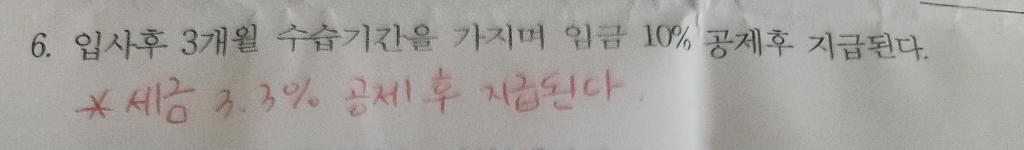 6. 입사후 3개월 수습기간을 가지며 임금 10% 공제후 지급된다.
* 세금 3.3% 공제 후 지급된다